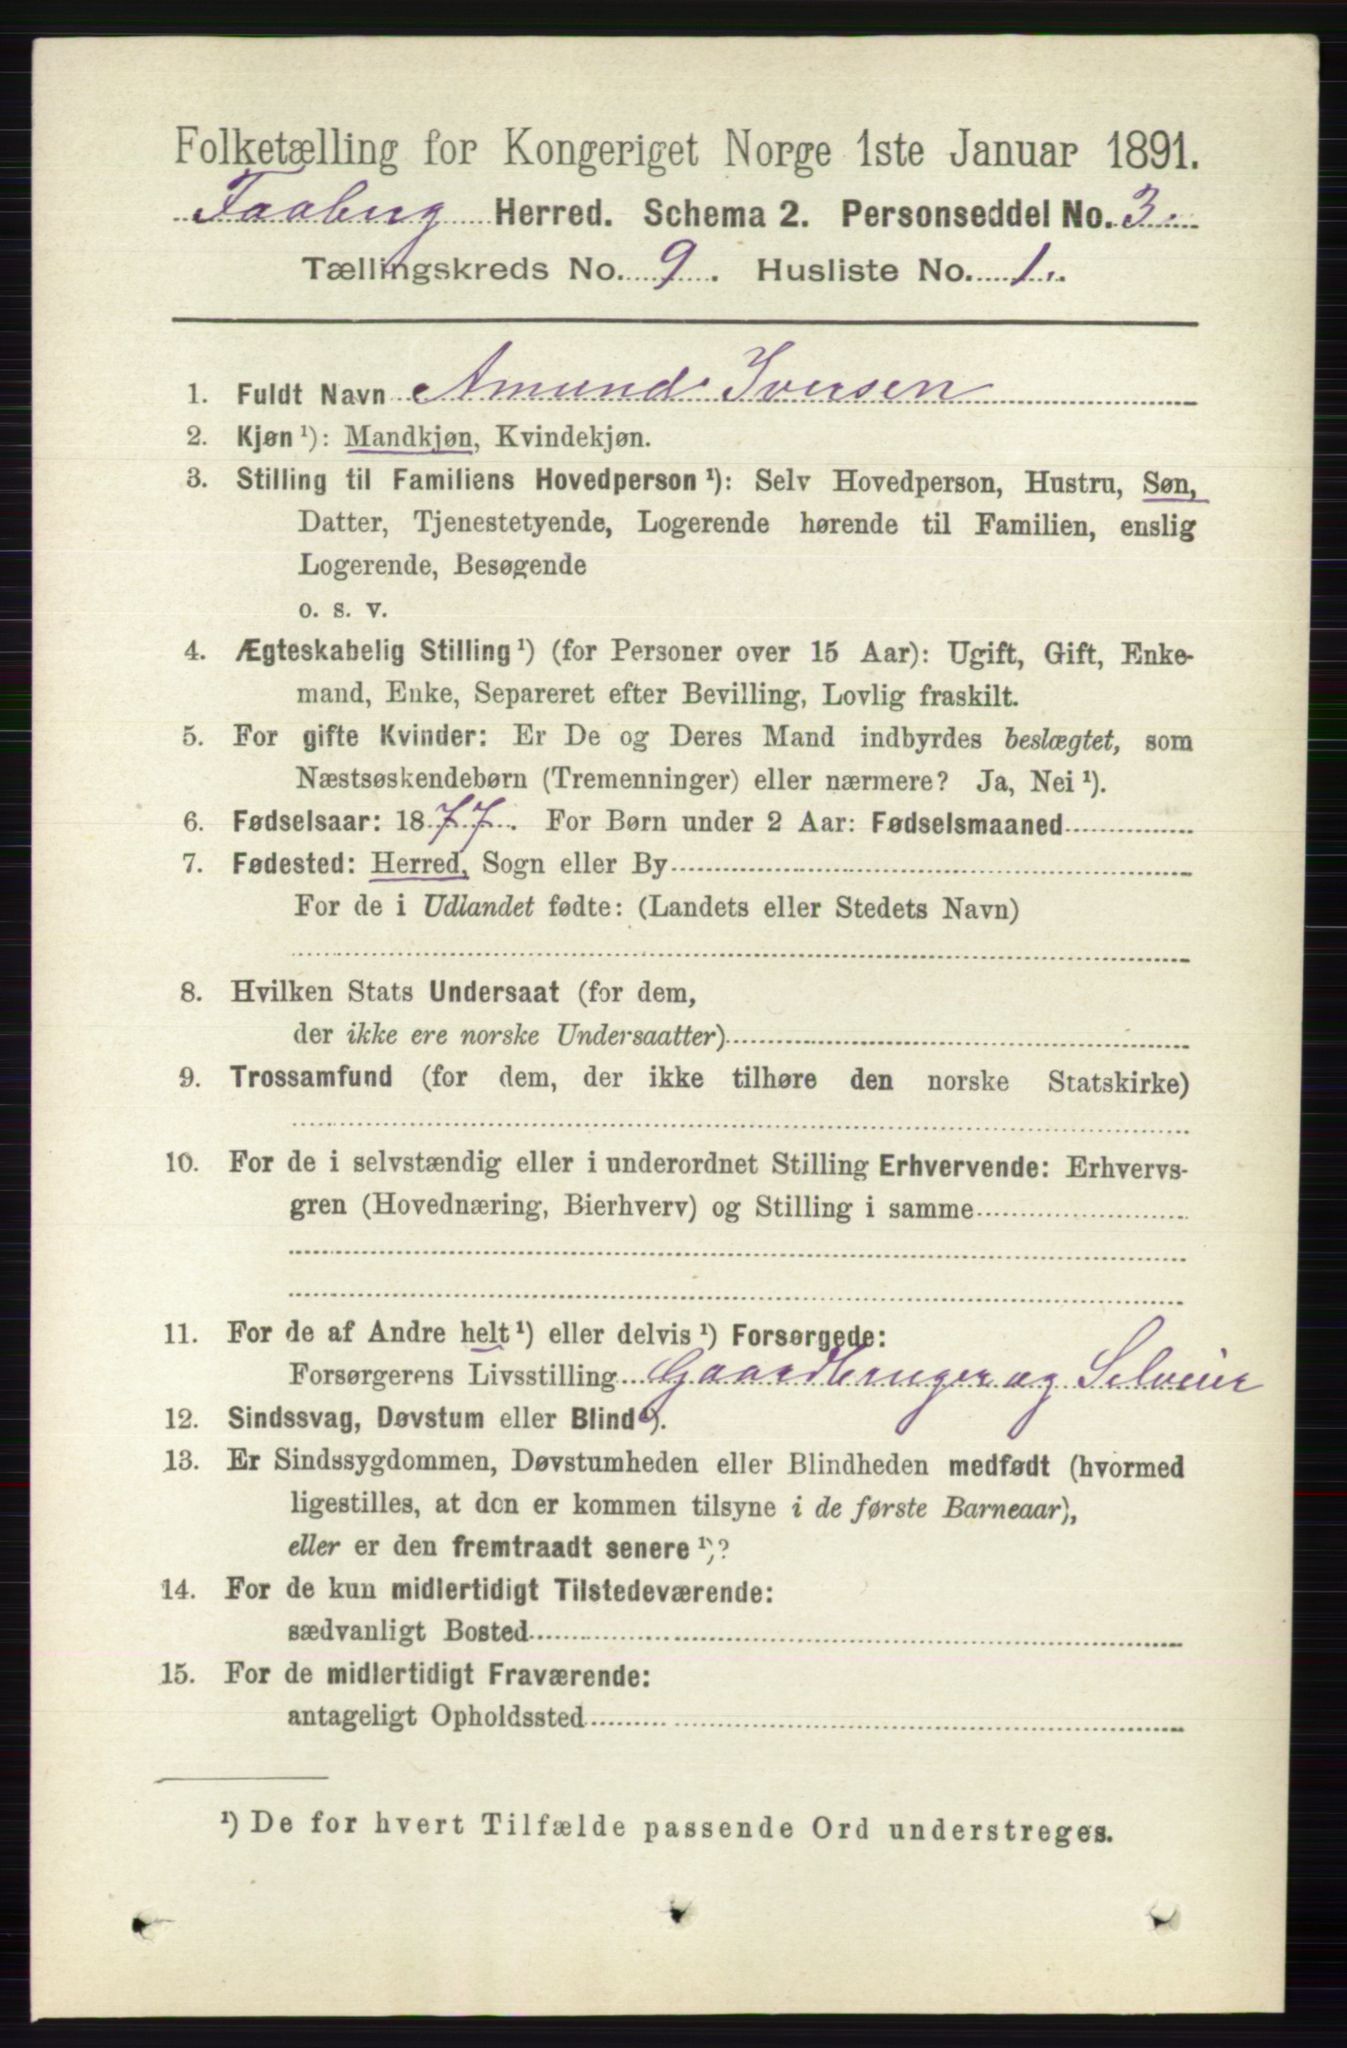 Folketælling for Kongeriget Norge 1ste Januar 1891.
Faaberg Herred. Schema 2. Personseddel No. 3.
Tællingskreds No. 9. Husliste No. 1.
1. Fuldt Navn Amund Iversen
2. Kjøn ¹): Mandkjøn, Kvindekjøn.
3. Stilling til Familiens Hovedperson ¹): Selv Hovedperson, Hustru, Søn,
Datter, Tjenestetyende, Logerende hørende til Familien, enslig
Logerende, Besøgende
o. s. v.
4. Ægteskabelig Stilling ¹) (for Personer over 15 Aar): Ugift, Gift, Enke-
mand, Enke, Separeret efter Bevilling, Lovlig fraskilt.
5. For gifte Kvinder: Er De og Deres Mand indbyrdes beslægtet, som
Næstsøskendebørn (Tremenninger) eller nærmere? Ja, Nei ¹).
6. Fødselsaar: 1877. For Børn under 2 Aar: Fødselsmaaned
7. Fødested: Herred, Sogn eller By
For de i Udlandet fødte: (Landets eller Stedets Navn)
8. Hvilken Stats Undersaat (for dem,
der ikke ere norske Undersaatter)
9. Trossamfund (for dem, der ikke tilhøre den norske Statskirke)
10. For de i selvstændig eller i underordnet Stilling Erhvervende: Erhvervs-
gren (Hovednæring, Bierhverv) og Stilling i samme
11. For de af Andre helt ¹) eller delvis ¹) Forsørgede:
Forsørgerens Livsstilling Gaardbruger og Selveier
12. Sindssvag, Døvstum eller Blind ¹).
13. Er Sindssygdommen, Døvstumheden eller Blindheden medfødt (hvormed
ligestilles, at den er kommen tilsyne i de første Barneaar),
eller er den fremtraadt senere ¹)?
14. For de kun midlertidigt Tilstedeværende:
sædvanligt Bosted
15. For de midlertidigt Fraværende:
antageligt Opholdssted
¹) De for hvert Tilfælde passende Ord understreges.